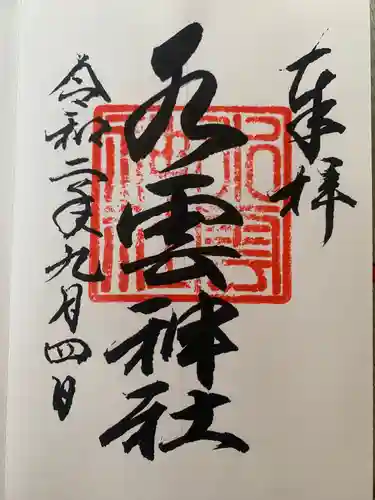 奉拝
水雲神社
令和二年九月四日